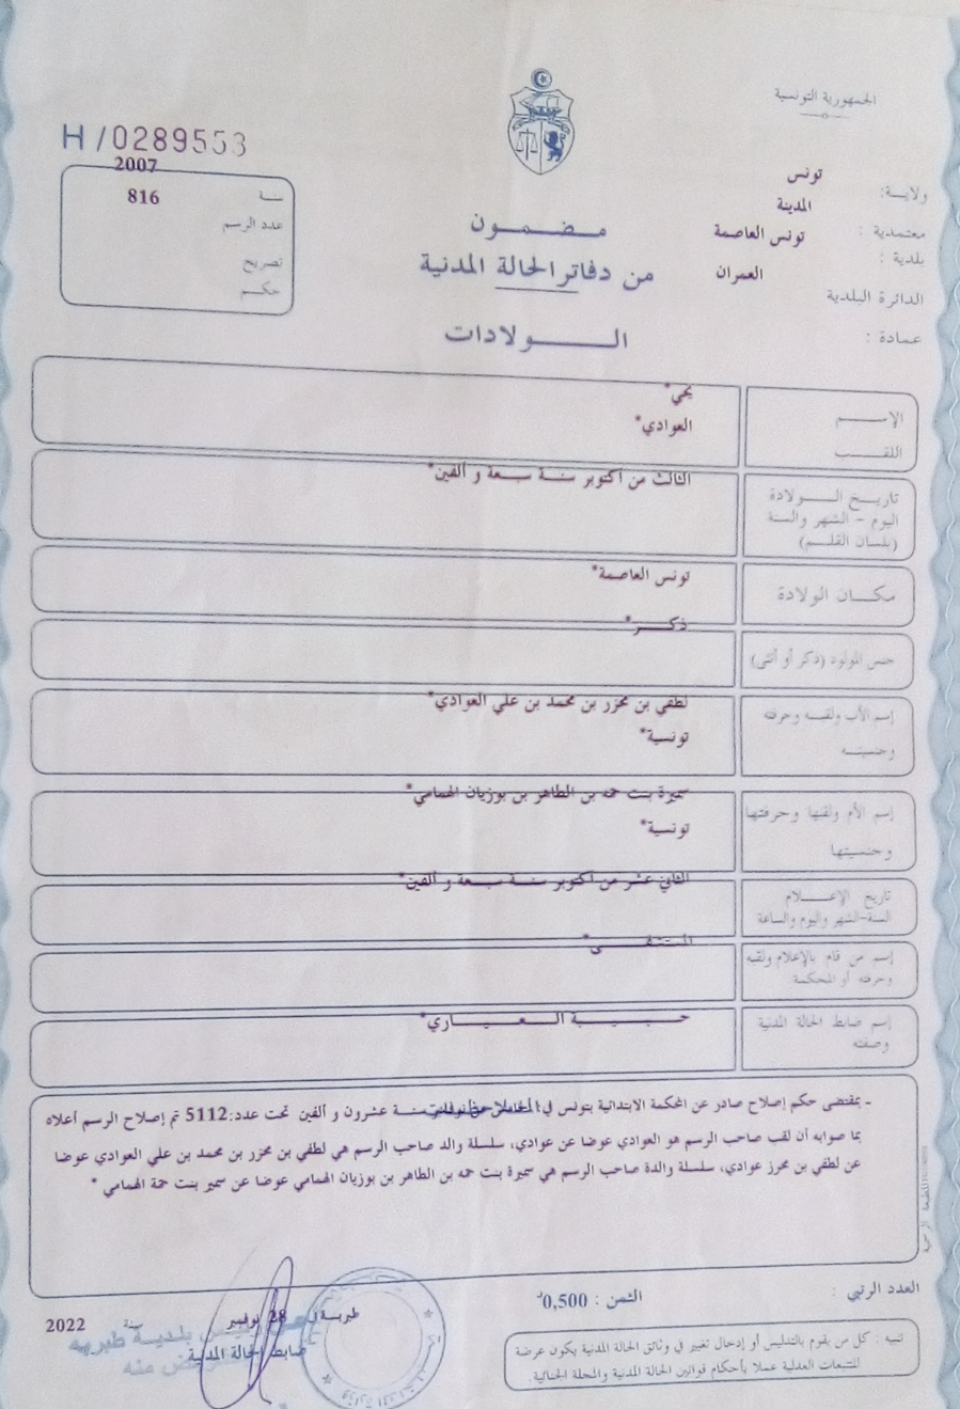 الجمهورية التونسية
H/0289553
ولاية: تونس
معتمدية : المدينة
بلدية : تونس العاصمة
الدائرة البلدية العمران
عمادة :
2007
سنة 816
عدد الرسم
تصريح
حكم
مضمون
من دفاتر الحالة المدنية
الولادات
الإسم يحي*
اللقب العوادي*
تاريخ الولادة
اليوم - الشهر والسنة
(بلسان القلم)
الثالث من أكتوبر سنة سبعة و ألفين*
مكان الولادة تونس العاصمة*
جنس المولود (ذكر أو أنثى) ذكر*
إسم الأب ولقبه وحرفته
وجنسيته
لطفي بن محرز بن محمد بن علي العوادي*
تونسية*
إسم الأم ولقبها وحرفتها
وجنسيتها
سميرة بنت حمه بن الطاهر بن بوزيان الهمامي*
تونسية*
تاريخ الإعلام
السنة-الشهر واليوم والساعة
الثاني عشر من أكتوبر سنة سبعة و ألفين*
إسم من قام بالإعلام ولقبه
وحرفته أو المحكمة
المستشفى*
إسم ضابط الحالة المدنية
وصفته
حبيبة العياري*
- بمقتضى حكم إصلاح صادر عن المحكمة الابتدائية بتونس في سنة عشرون و ألفين تحت عدد:5112 تم إصلاح الرسم أعلاه
بما صوابه أن لقب صاحب الرسم هو العوادي عوضا عن عوادي، سلسلة والد صاحب الرسم هي لطفي بن محرز بن محمد بن علي العوادي عوضا
عن لطفي بن محرز عوادي، سلسلة والدة صاحب الرسم هي سميرة بنت حمه بن الطاهر بن بوزيان الهمامي عوضا عن سمير بنت حمة الهمامي *
العدد الرتبي :
الثمن : 0,500
طبربة 28 نوفمبر سنة 2022
ضابط الحالة المدنية
رئيس بلدية طبربه
تنبيه : كل من يقوم بالتدليس أو إدخال تغيير في وثائق الحالة المدنية يكون عرضة
للتتبعات العدلية عملا بأحكام قوانين الحالة المدنية والمجلة الجنائية.